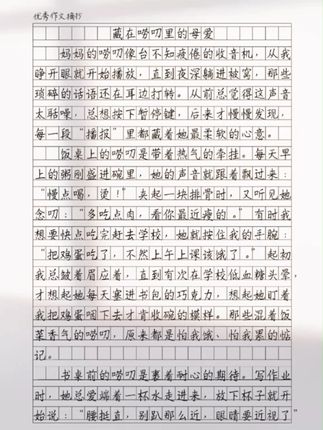 优秀作文摘抄
藏在唠叨里的母爱
妈妈的唠叨像台不知疲倦的收音机，从我
睁开眼就开始播放，直到夜深躺进被窝，那些
琐碎的话语还在耳边打转。从前总觉得这声音
太聒噪，总想按下暂停键，后来才慢慢发现，
每一段“播报”里都藏着她最柔软的心意。
饭桌上的唠叨是带着热气的牵挂。每天早
上的粥刚盛进碗里，她的声音就跟着飘过来：
“慢点喝，烫！”夹起一块排骨时，又听见她
念叨：“多吃点肉，看你最近瘦的。”有时我
想要快点吃完赶去学校，她就按住我的手腕：
“把鸡蛋吃了，不然上午上课该饿了。”起初
我总皱着眉应着，直到有次在学校低血糖头晕，
才想起她每天塞进书包的巧克力，想起她盯着
我把鸡蛋咽下去才肯收碗的模样。那些混着饭
菜香气的唠叨，原来都是怕我饿、怕我累的惦
记。
书桌前的唠叨是裹着耐心的期待。写作业
时，她总爱端着一杯水走进来，放下杯子就开
始说：“腰挺直，别趴那么近，眼睛要近视了”